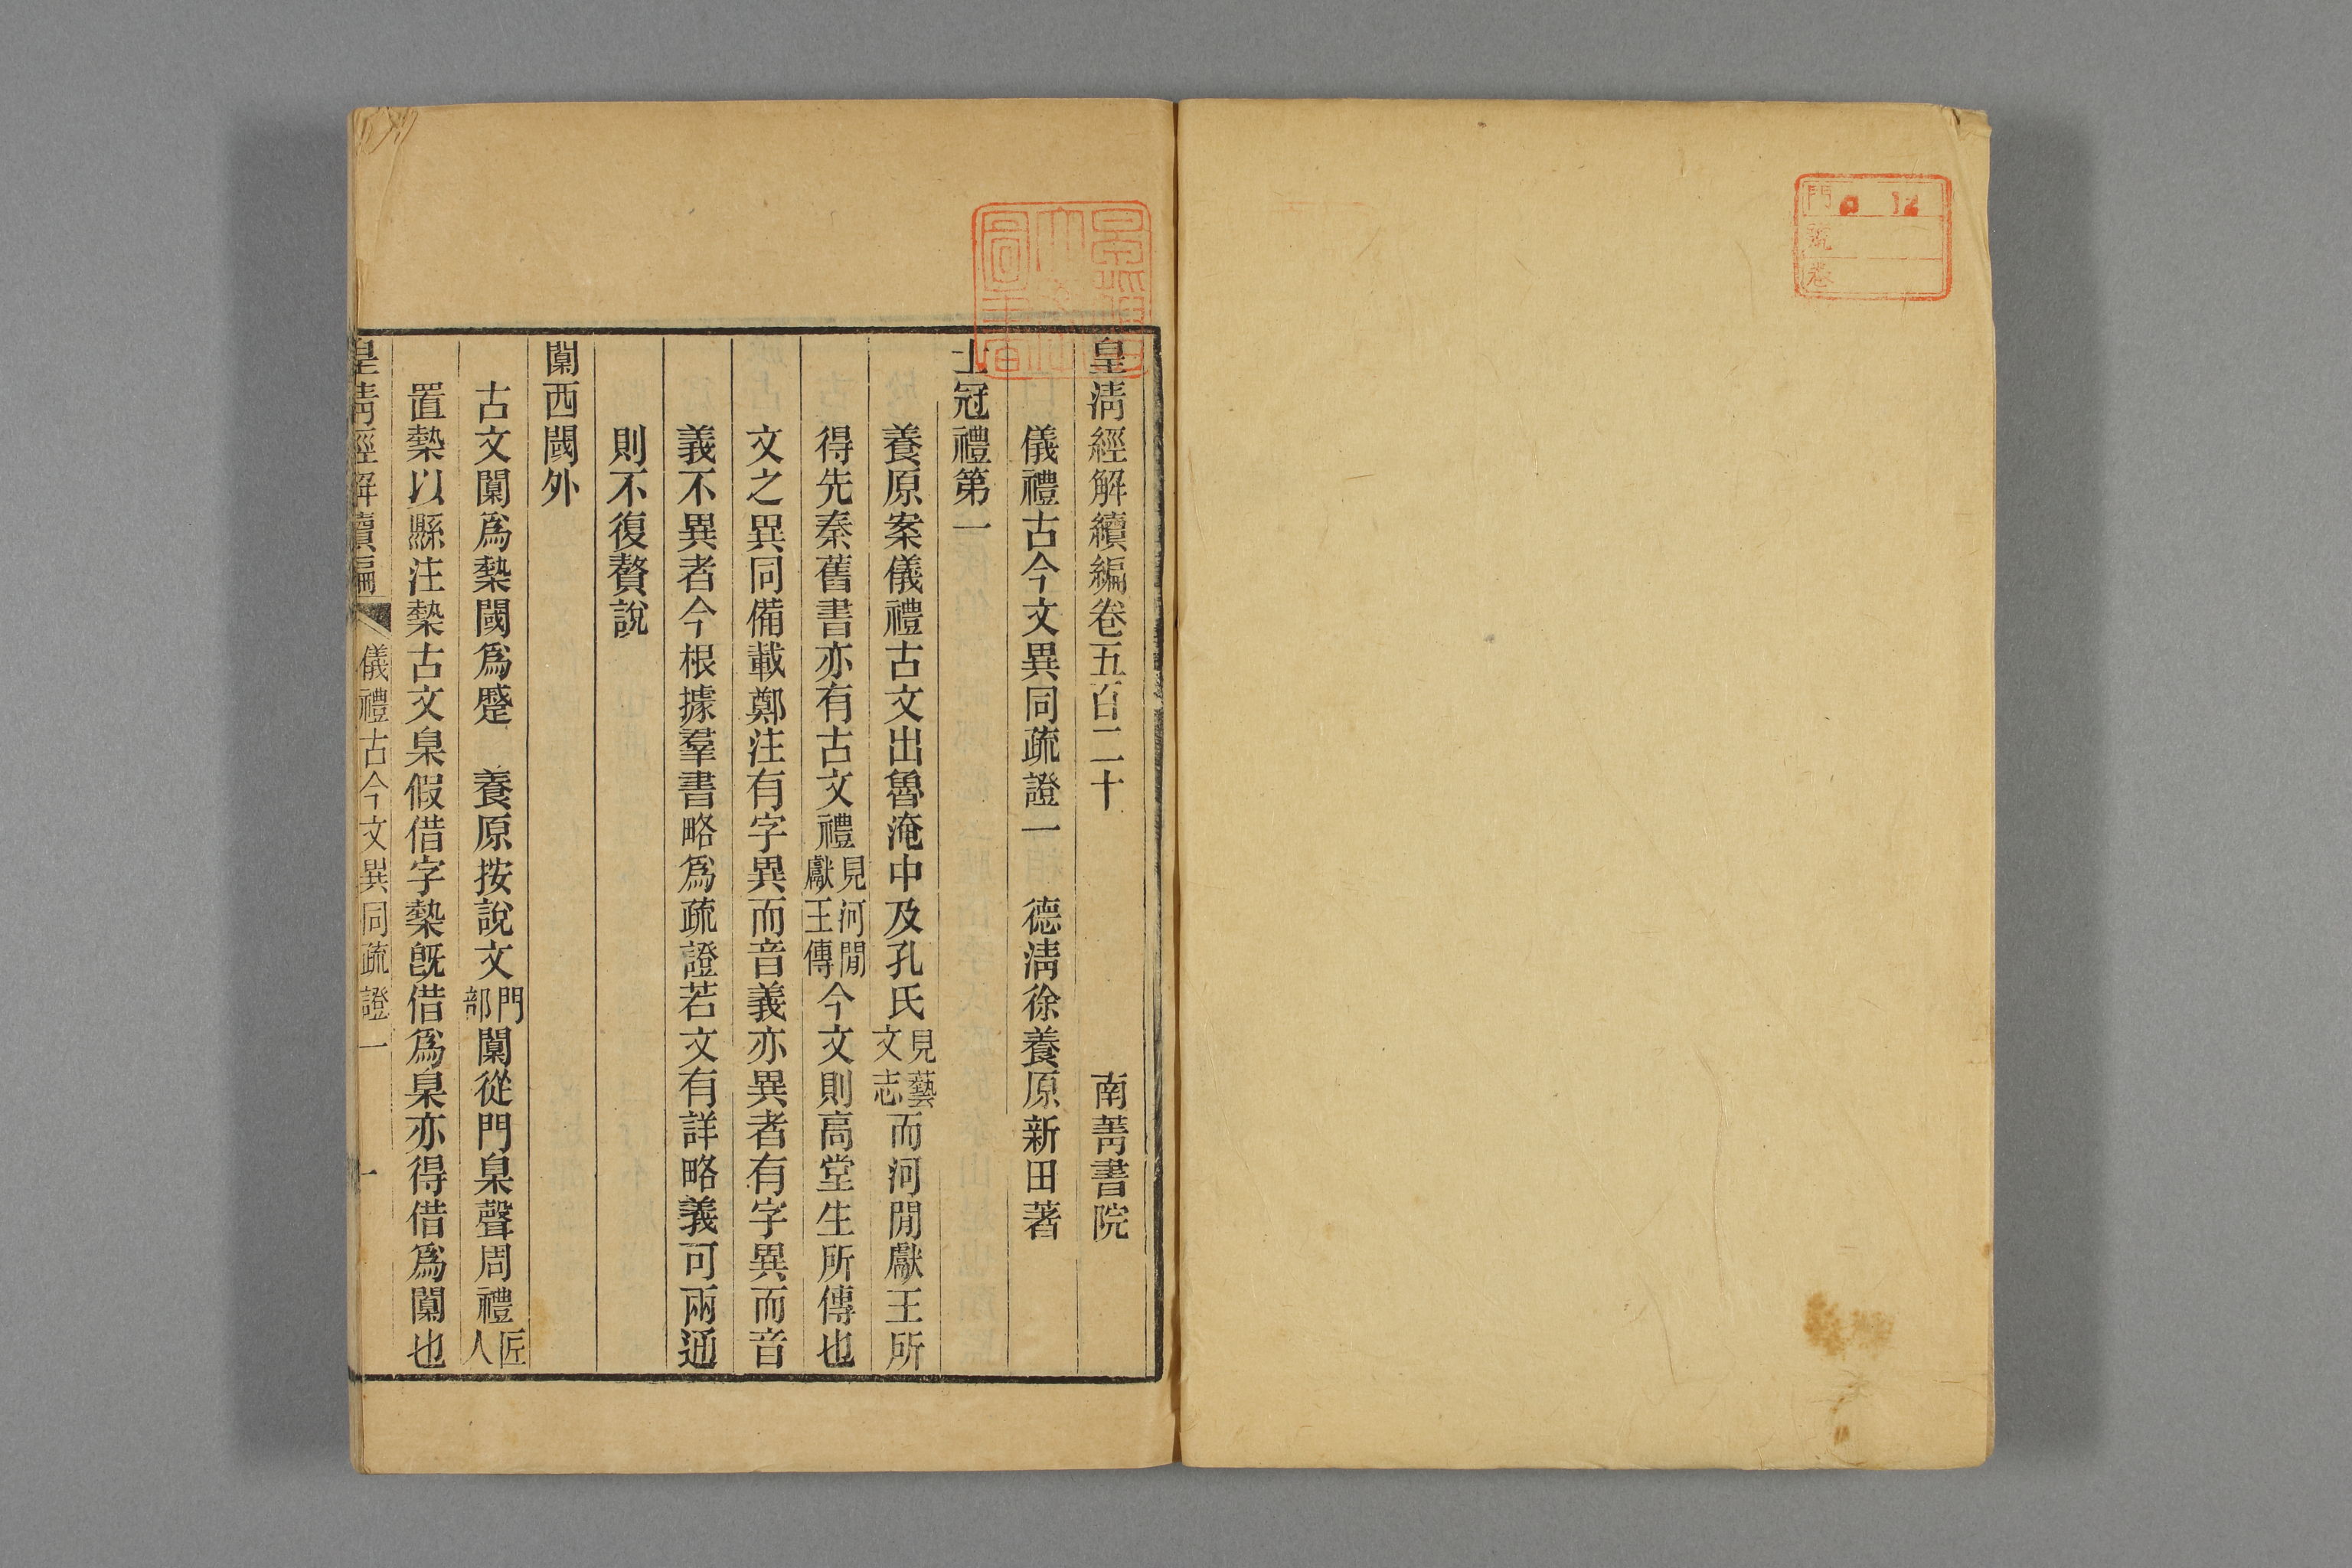 門 號 卷
皇清經解續編卷五百二十 南菁書院
儀禮古今文異同疏證一 德清徐養原新田著
士冠禮第一
養原案儀禮古文出魯淹中及孔氏見藝文志而河閒獻王所
得先秦舊書亦有古文禮見河閒獻王傳今文則高堂生所傳也
文之異同備載鄭注有字異而音義亦異者有字異而音
義不異者今根據羣書略爲疏證若文有詳略義可兩通
則不復贅說
闑西閾外
古文闑爲槷閾爲蹙 養原按說文門部闑從門臬聲周禮匠人
置槷以縣注槷古文臬假借字槷旣借爲臬亦得借爲闑也
皇清經解續編 儀禮古今文異同疏證一 一